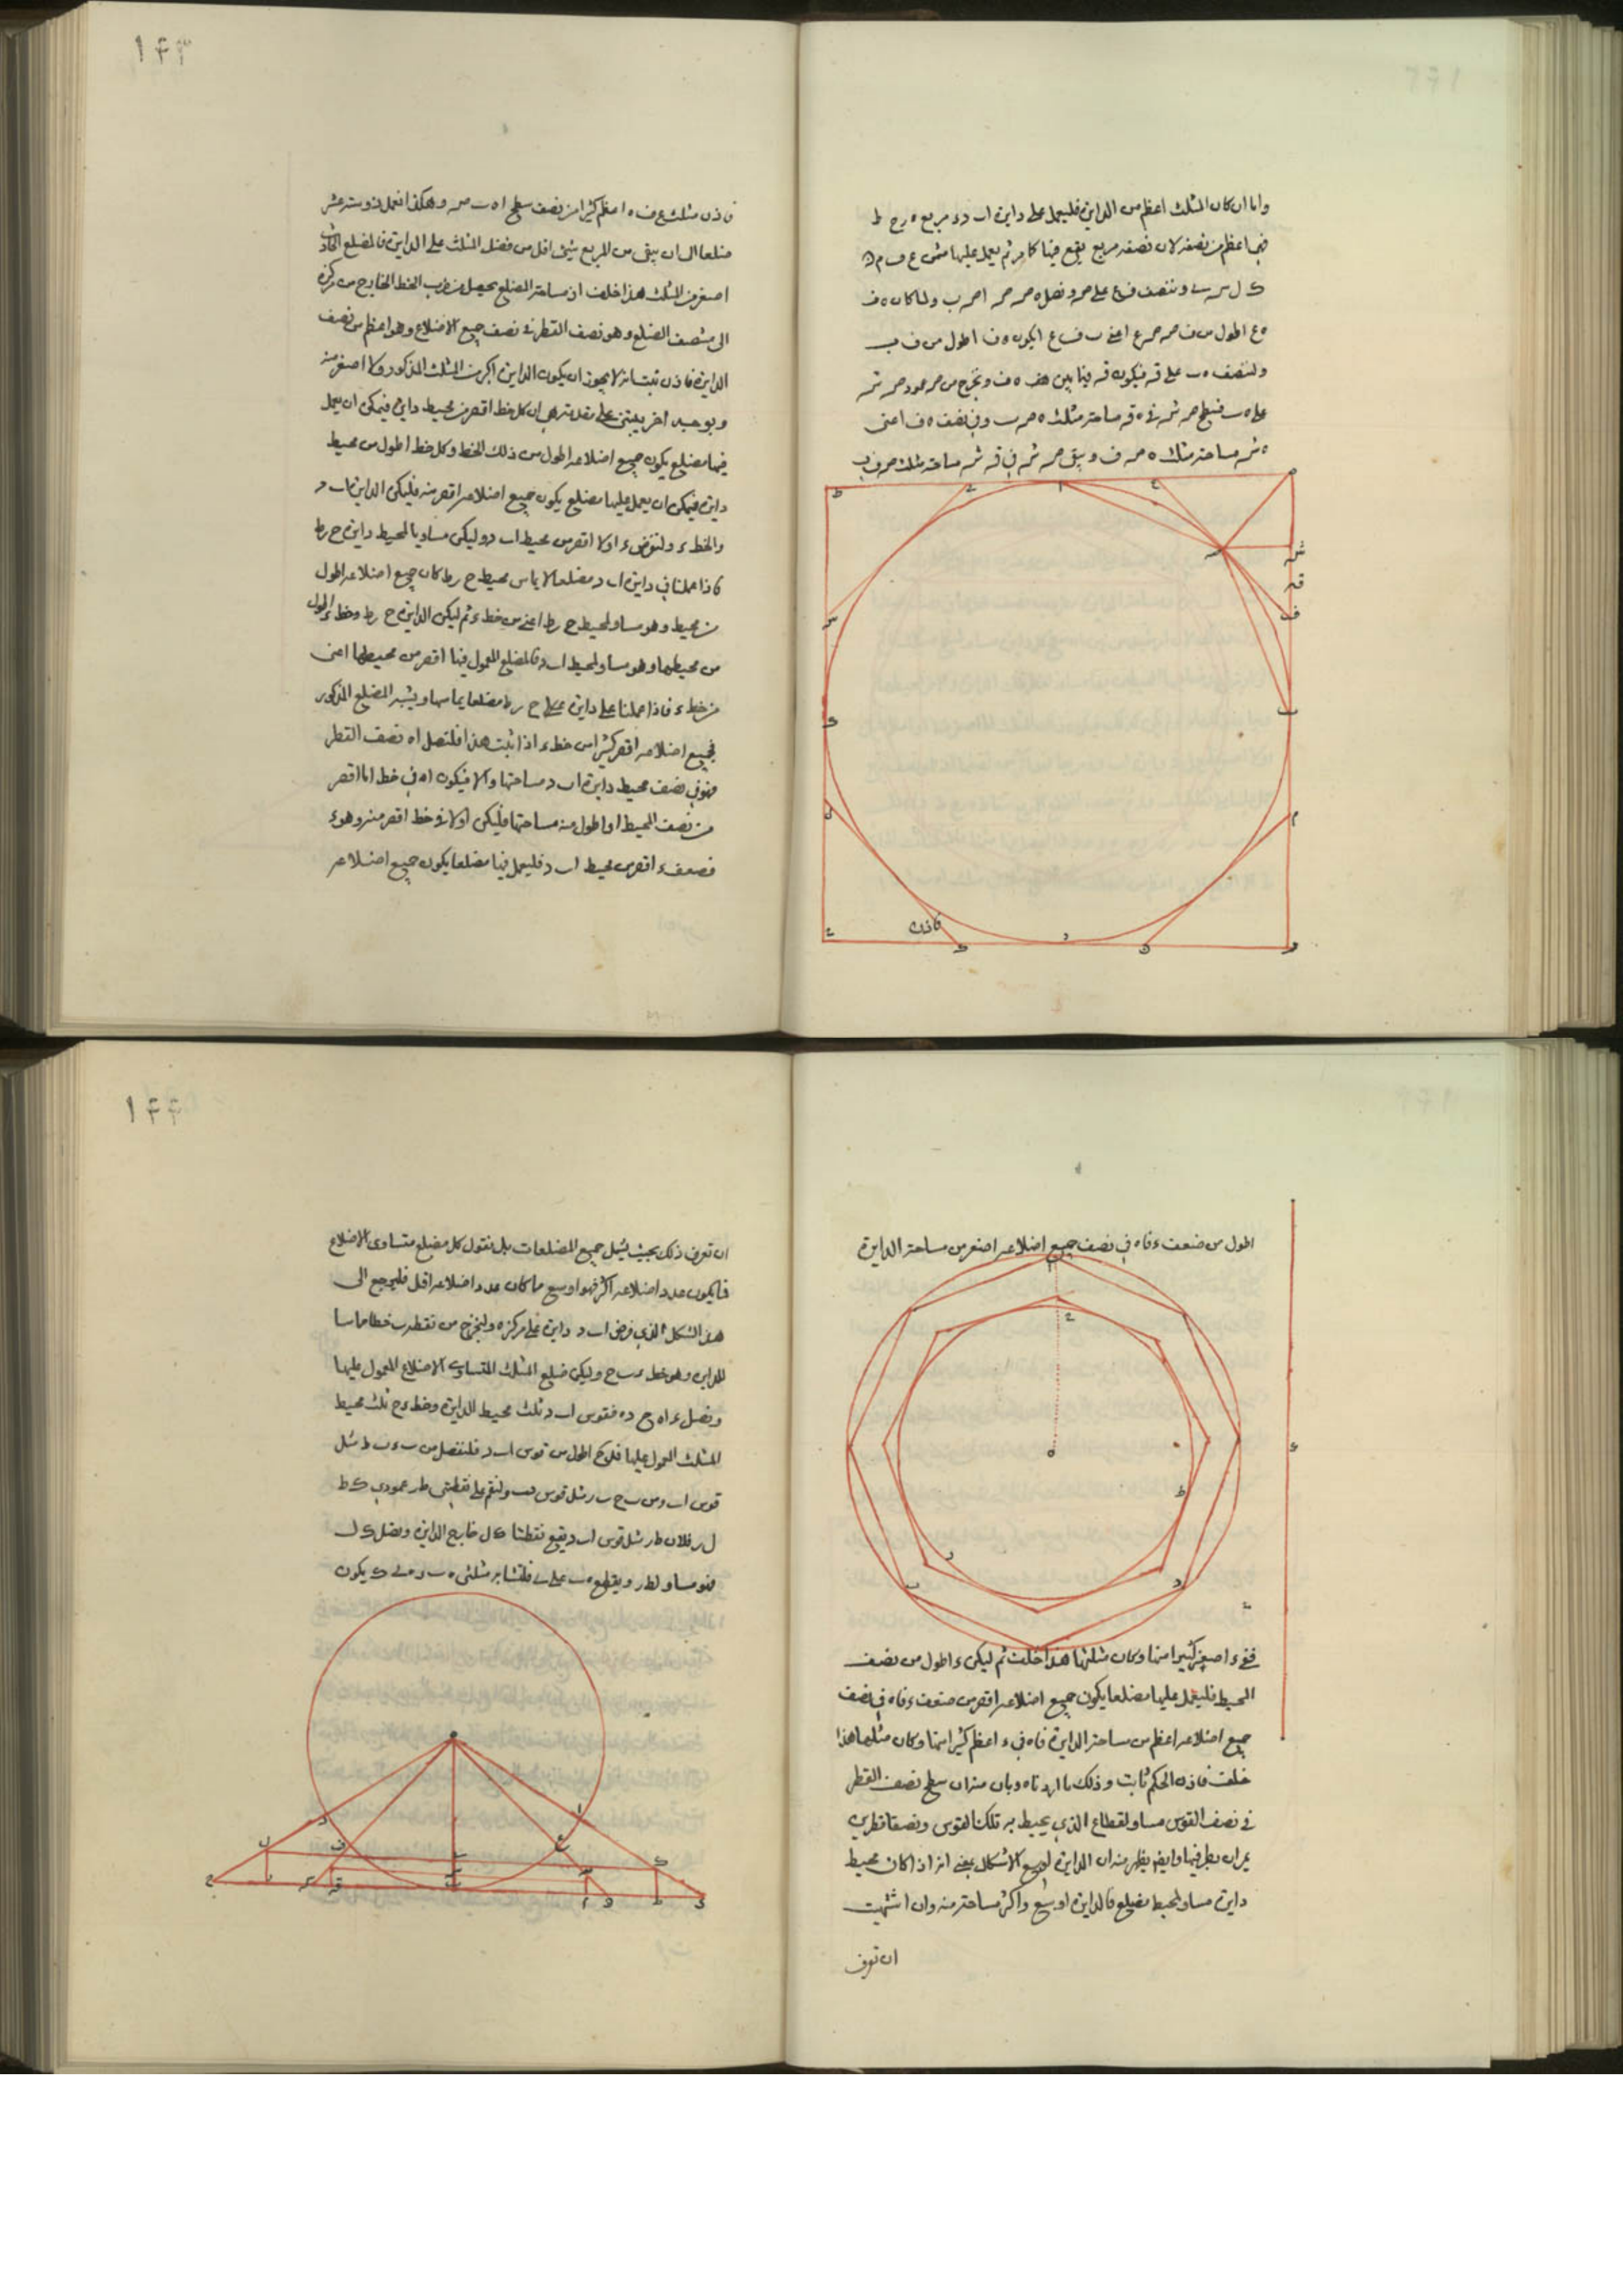 واما ان كان المثلث اعظم من الدايرة فليعمل على دايرة اب د ء مربع ه رح ط
فهي اعظم من نصفه لان نصفه مربع يقع فيها كما مر ثم يعمل عليها مثمن ع ف م ن
ك ل س
ه ع اطول من ف ص ص ع اعني ب ف ع ا يكون ه ف اطول من ف ب
ولننصف ه ب على قه فيكون قه فيما بين ه ف ونخرج من ص عمود ص شه
على ه ب فسطح ص شه في ه قه مساحة مثلث ه ص ب وفي نصف ه ف اعني
ه شه مساحة مثلث ه ص ف ويبقى ص شه في قه شه مساحة مثلث ص ف ب
فاذن
١٤٣
فاذن مثلث ع ف ه اعظم كثيرا من نصف سطح ا ه ب ص وهكذا نعمل ذو ستة عشر
ضلعا الى ان يبقى من المربع شيئ اقل من فضل المثلث على الدايرة فالمضلع الحادث
اصغر من المثلث هذا خلف اذ مساحة المضلع يحصل من ضرب الخط الخارج من مركزه
الى منتصف الضلع وهو نصف القطر في نصف جميع الاضلاع وهو اعظم من نصف
الدايرة فاذن ثبت انه لا يجوز ان يكون الدايرة اكبر من المثلث المذكور ولا اصغر منه
وبوجه اخر يبتنى على مقدمة هي ان كل خط اقصر من محيط دايرة فيمكن ان يعمل
فيها مضلع يكون جميع اضلاعه اطول من ذلك الخط وكل خط اطول من محيط
دايرة فيمكن ان يعمل عليها مضلع يكون جميع اضلاعه اقصر منه فليكن الدايرة اب د
والخط ء ولنفرض ء اولا اقصر من محيط اب د وليكن مساويا لمحيط دايرة ح ر ط
فاذا عملنا في دايرة اب د مضلعا لا يماس محيط ح ر ط كان جميع اضلاعه اطول
من محيط وهو مساو لمحيط ح ر ط اعني من خط ء ثم ليكن الدايرة ح ر ط وخط ء اطول
من محيطها وهو مساو لمحيط اب د فالمضلع المعمول فيها اقصر من محيطها اعنى
من خط ء فاذا عملنا على دايرة ح ر ط مضلعا يماسها ويشبه المضلع المذكور
فجميع اضلاعه اقصر كثيرا من خط ء اذا ثبت هذا فلنصل ا ه نصف القطر
فهو في نصف محيط دايرة اب د مساحتها والا فيكون ا ه في خط اما اقصر
من نصف المحيط او اطول منه مساحتها فليكن اولا في خط اقصر منه وهو ء
فضعف ء اقصر من محيط اب د فليعمل فيها مضلعا يكون جميع اضلاعه
اطول من ضعف ء فاه في نصف جميع اضلاعه اصغر من مساحة الدايرة
ففي ء اصغر كثيرا منها وكان مثلها هذا خلف ثم ليكن ء اطول من نصف
المحيط فليعمل عليها مضلعا يكون جميع اضلاعه اقصر من ضعف ء فاه في نصف
جميع اضلاعه اعظم من مساحة الدايرة فاه في ء اعظم كثيرا منها وكان مثلها هذا
خلف فاذن الحكم ثابت وذلك ما اردناه وبان منه ان سطح نصف القطر
في نصف القوس مساو لقطاع الذي يحيط به تلك القوس ونصفا قطرين
يمران بطرفيها وايضا يظهر منه ان الدايرة اوسع الاشكال يعني انه اذا كان محيط
دايرة مساو لمحيط مضلع فالدايرة اوسع واكثر مساحة منه وان اشتهيت
ان تعرف
١٤٤
ان تعرف ذلك بحيث يشمل جميع المضلعات بل نقول كل مضلع متساوى الاضلاع
فما يكون عدد اضلاعه اكثر فهو اوسع مما كان عدد اضلاعه اقل فليرجع الى
هذا الشكل الذي فرض اب د دايرة على مركز ه وليخرج من نقطة ب خطا مماسا
للدايرة وهو خط ء ب ح وليكن ضلع المثلث المتساوي الاضلاع المعمول عليها
ونصل ء ا ه ح د ه فقوس اب د ثلث محيط الدايرة وخط ء ح ثلث محيط
المثلث المعمول عليها فلء ح اطول من قوس اب د فلنفصل من ب ء ب ط مثل
قوس اب ومن ب ح ب ر مثل قوس ب د ولنقم على نقطتي ط ر عمودي ك ط
ل ر فلان ط ر مثل قوس اب د يقع نقطتا ك ل خارج الدايرة ونصل ك ل
فهو مساو لط ر ويقطع ه ب على ى فلتشابه مثلثي ه ب ء ه ى ك يكون